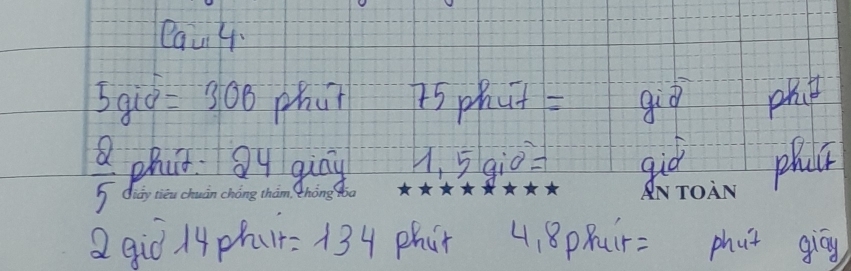 Câu 4.
5 giờ = 300 phút 75 phút = giờ phút
2/5 phút = 24 giây 1,5 giờ = giờ phút
Giấy tiêu chuẩn chống thấm, chống lóa ★★★★★★★★ AN TOÀN
2 giờ 14 phút = 134 phút 4,8 phút = phút giây